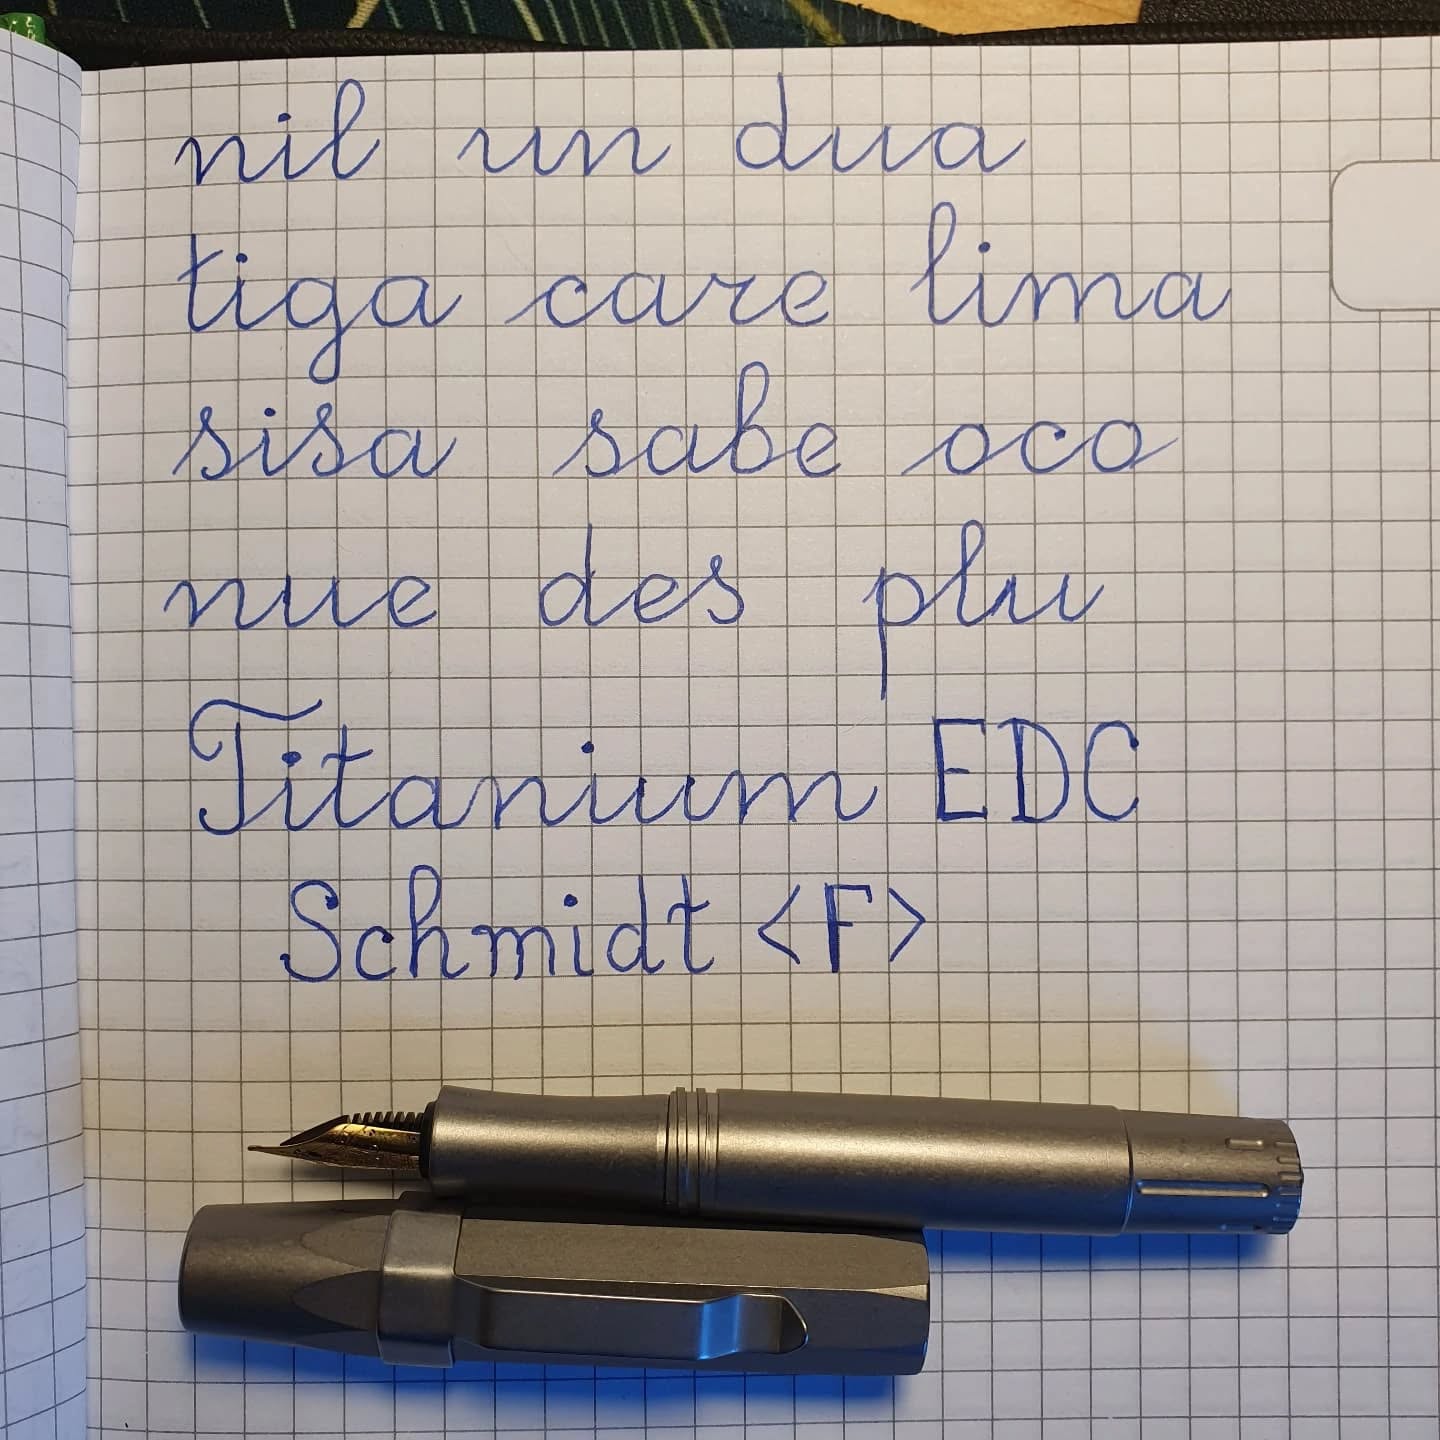 nil un dua
tiga care lima
sisa sabe oco
nue des plu
Titanium EDC
Schmidt <F>